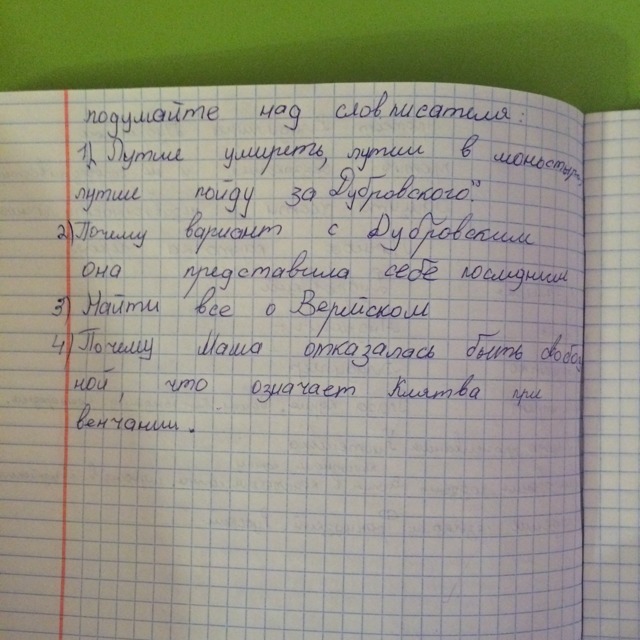 подумайте над слов писателя:
1) „Лутше умиреть, лутши в моностырь,
лутше пойду за Дубровского".
2) Почему вариант с Дубровским
она представила себе последним
3) Найти все о Верейском
4) Почему Маша отказалась быть свобод
ной, что означает Клятва при
венчании.